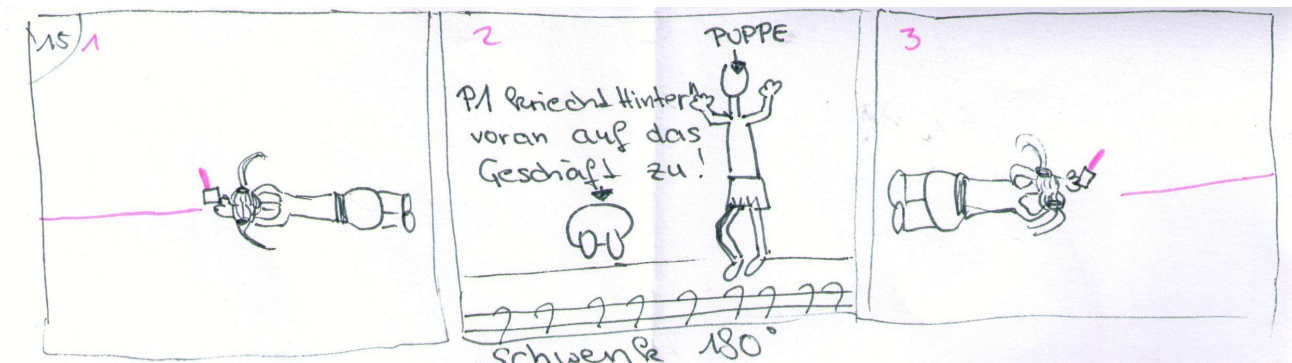 15 1
2
PUPPE
P1 kriecht Hintern
voran auf das
Geschäft zu!
3
Schwenk 180°